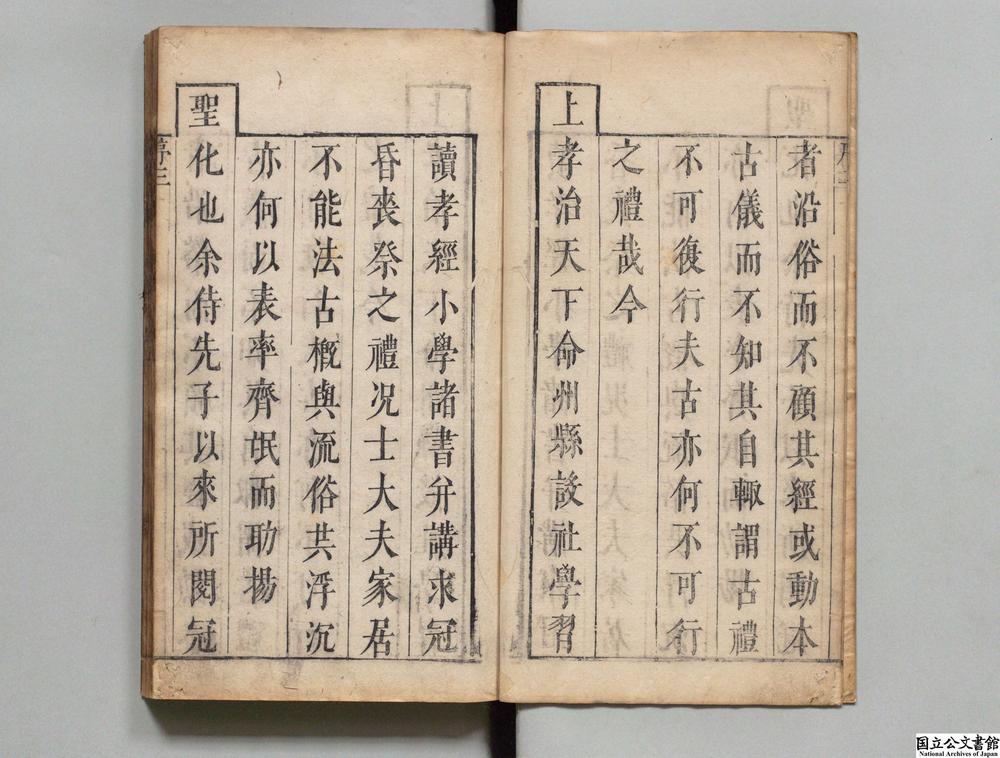 者沿俗而不顧其經或動本
古儀而不知其自輙謂古禮
不可復行夫古亦何不可行
之禮哉今
上孝治天下命州縣設社學習
讀孝經小學諸書弁講求冠
昏喪祭之禮况士大夫家居
不能法古槪與流俗共浮沉
亦何以表率齊氓而助揚
聖化也余侍先子以來所閱冠
序三
国立公文書館
National Archives of Japan